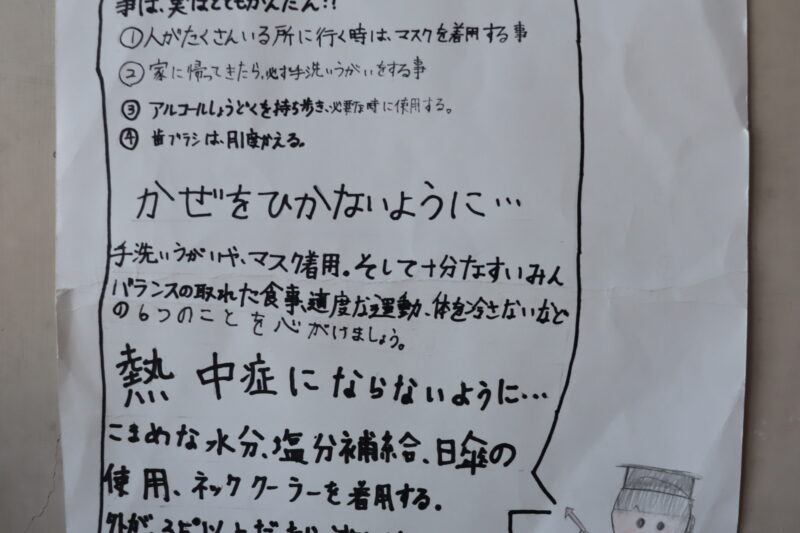 事は、実はとてもかんたん!!
①人がたくさんいる所に行く時は、マスクを着用する事
②家に帰ってきたら、必ず手洗いうがいをする事
③アルコールしょうどくを持ち歩き、必要な時に使用する。
④歯ブラシは、月1度かえる。
かぜをひかないように…
手洗いうがいや、マスク着用。そして十分なすいみん
バランスの取れた食事、適度な運動、体を冷さないなど
の6つのことを心がけましょう。
熱中症にならないように…
こまめな水分、塩分補給、日傘の
使用、ネッククーラーを着用する。
外が、35°以上だ